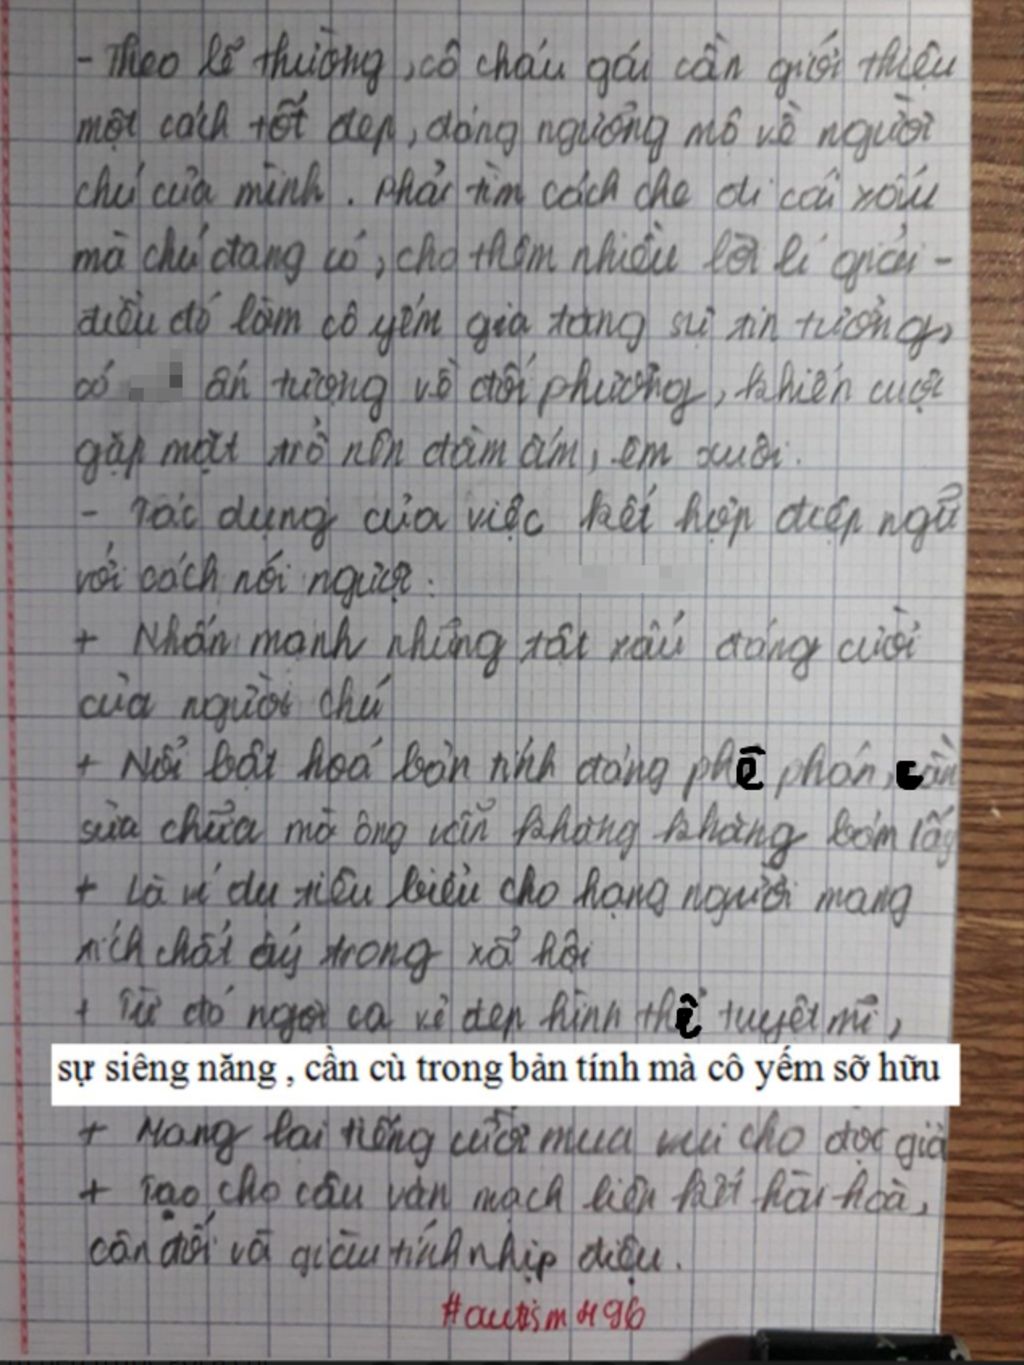 - Theo lẽ thường, cô cháu gái cần giới thiệu
một cách tốt đẹp, đáng ngưỡng mộ về người
chú của mình. Phải tìm cách che đi cái xấu
mà chú đang có, cho thêm nhiều lời lí giải -
điều đó làm cô yếm gia tăng sự tin tưởng,
có ấn tượng về đối phương, khiến cuộc
gặp mặt trở nên đầm ấm, êm xuôi.
- Tác dụng của việc kết hợp điệp ngữ
với cách nói ngược:
+ Nhấn mạnh những tật xấu đáng cười
của người chú
+ Nổi bật hoá bản tính đáng phê phán, cần
sửa chữa mà ông vẫn khăng khăng bám lấy
+ Là ví dụ tiêu biểu cho hạng người mang
tích chất ấy trong xã hội
+ Từ đó ngợi ca vẻ đẹp hình thể tuyệt mĩ,
sự siêng năng , cần cù trong bản tính mà cô yếm sỡ hữu
+ Mang lại tiếng cười mua vui cho độc giả
+ Tạo cho câu văn mạch liên kết hài hoà,
cân đối và giàu tính nhịp điệu.